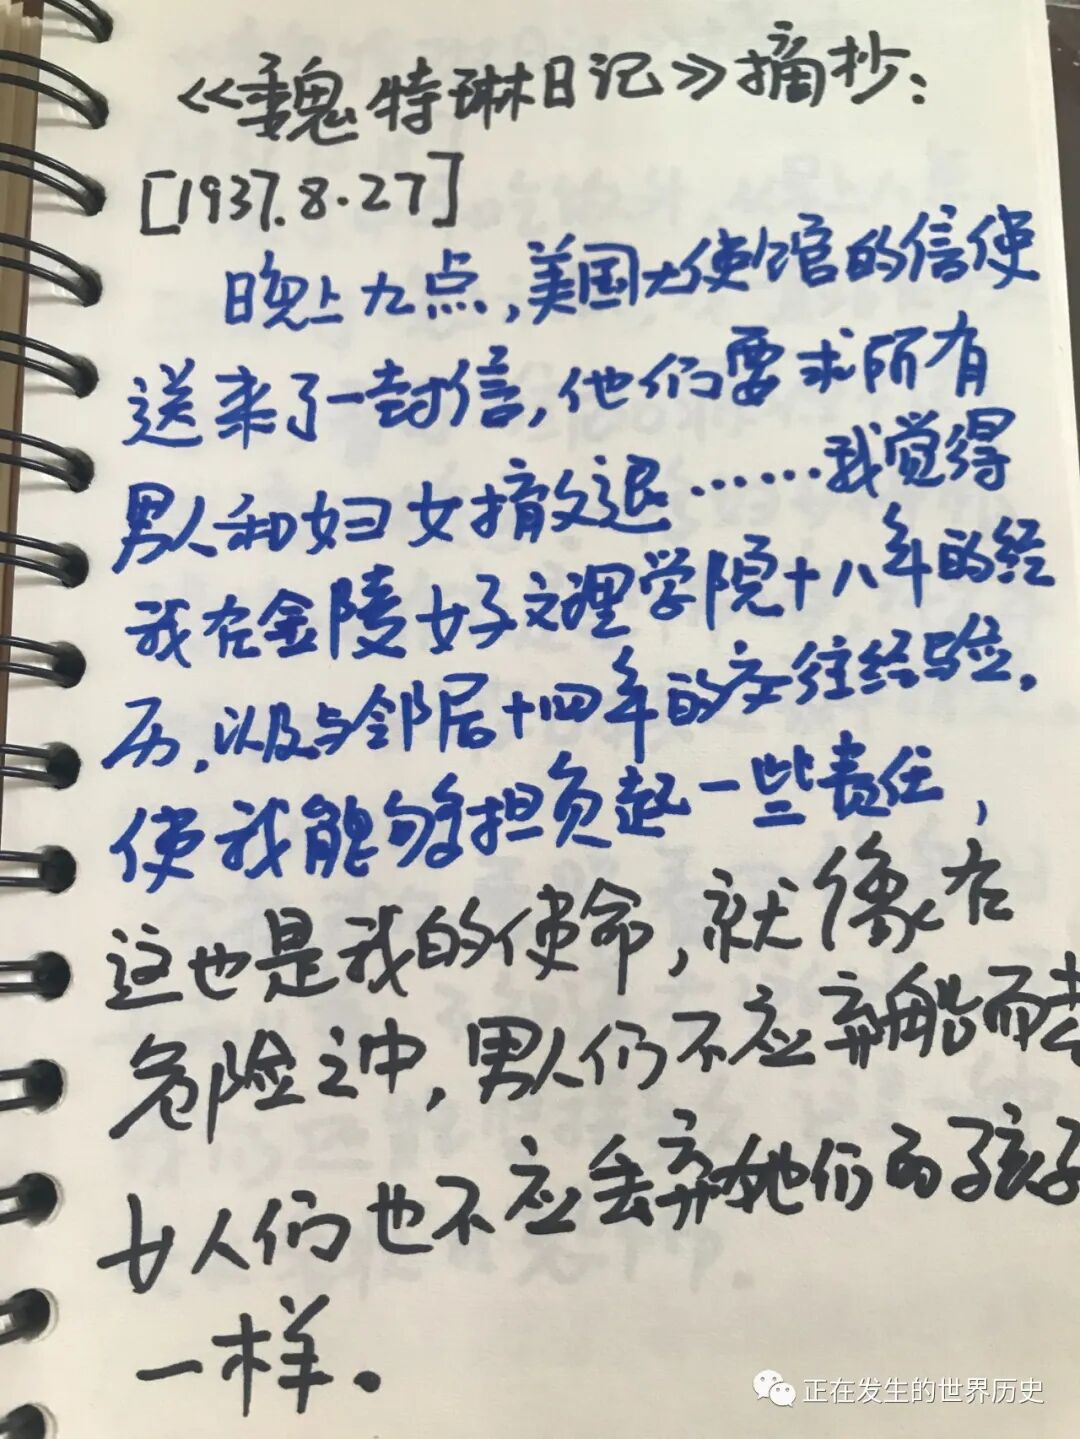 《魏特琳日记》摘抄：
[1937.8.27]
晚上九点，美国大使馆的信使
送来了一封信，他们要求所有
男人和妇女撤退……我觉得
我在金陵女子文理学院十八年的经
历，以及与邻居十四年的交往经验，
使我能够担负起一些责任，
这也是我的使命，就像在
危险之中，男人们不应弃船而去
女人们也不应丢弃她们的孩子
一样。
正在发生的世界历史